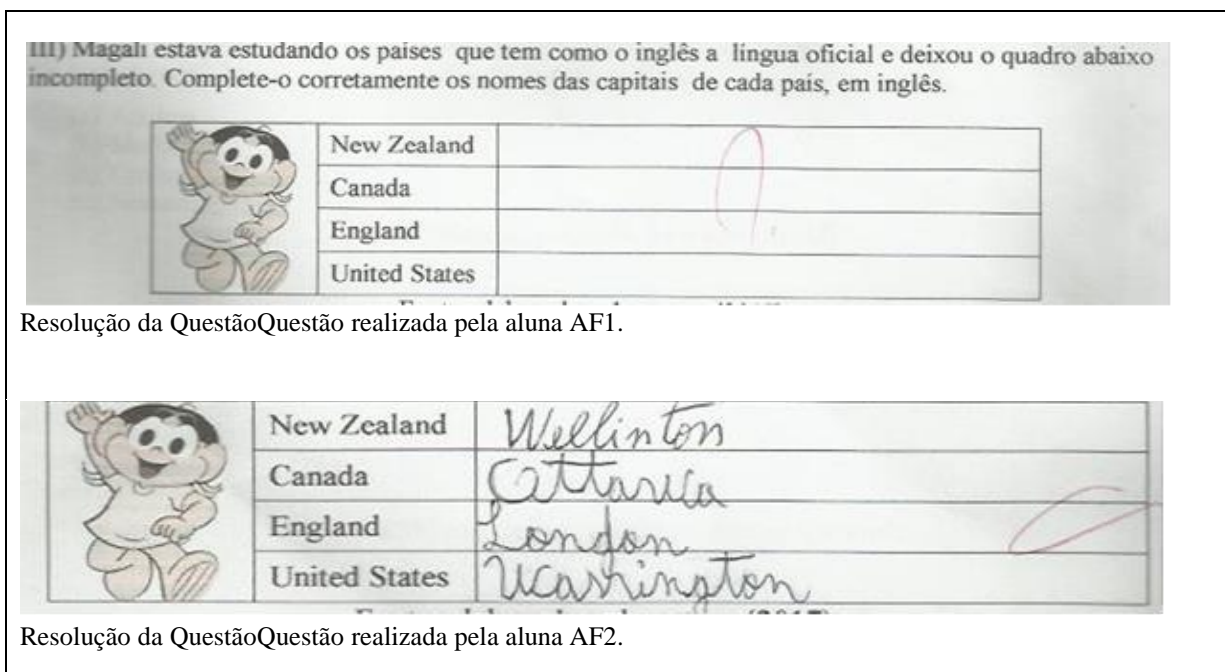 III) Magali estava estudando os países que tem como o inglês a língua oficial e deixou o quadro abaixo
incompleto. Complete-o corretamente os nomes das capitais de cada país, em inglês.
New Zealand
Canada
England
United States
Resolução da QuestãoQuestão realizada pela aluna AF1.
New Zealand Wellinton
Canada
England London
United States
Resolução da QuestãoQuestão realizada pela aluna AF2.